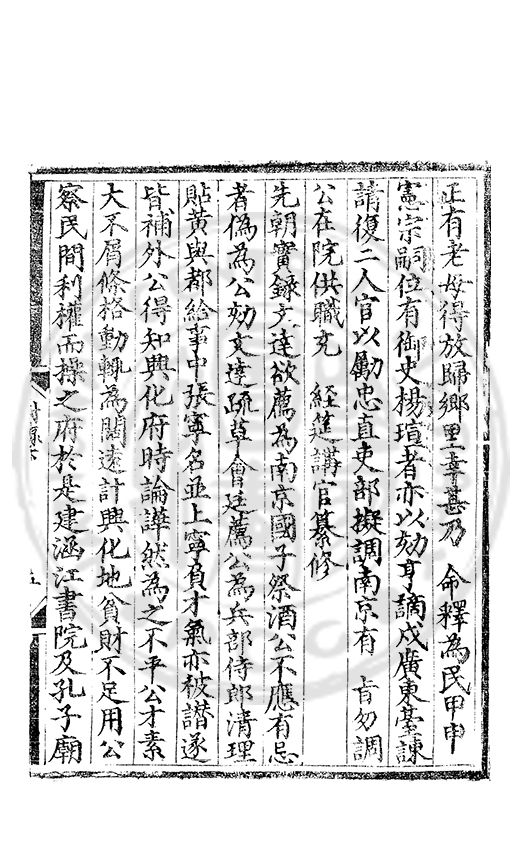 正有老母得放歸鄉里幸甚乃　命釋為民甲申
憲宗嗣位有御史楊瑄者亦以劾亨謫戍廣東臺諫
請復二人官以勵忠直吏部擬調南京有　旨勿調
公在院供職充　經筵講官纂修
先朝實錄文達欲薦為南京國子祭酒公不應有忌
者偽為公劾文達疏草會廷薦公為兵部侍郎清理
貼黃與都給事中張寧名並上寧負才氣亦被譖遂
皆補外公得知興化府時論譁然為之不平公才素
大不屑條格動輒為闊遠計興化地貧財不足用公
察民間利權而操之府於是建涵江書院及孔子廟